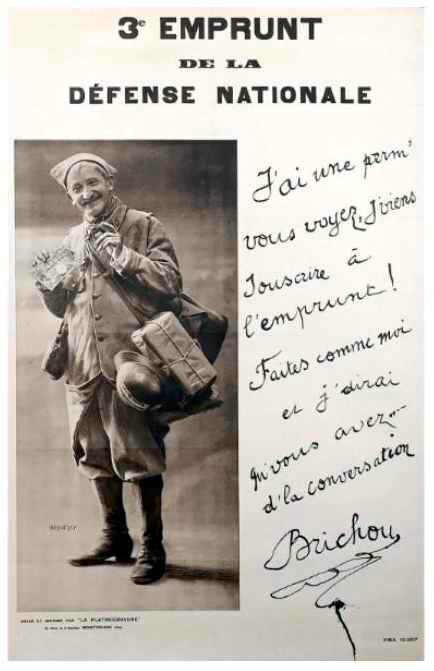 3e EMPRUNT
DE LA
DÉFENSE NATIONALE
J'ai une perm'
vous voyez, J'viens
Souscrire à
l'emprunt!
Faites comme moi
et j'dirai
qu'vous avez
d'la conversation
Brichou
PAR "LA PHOTOGRAVURE"